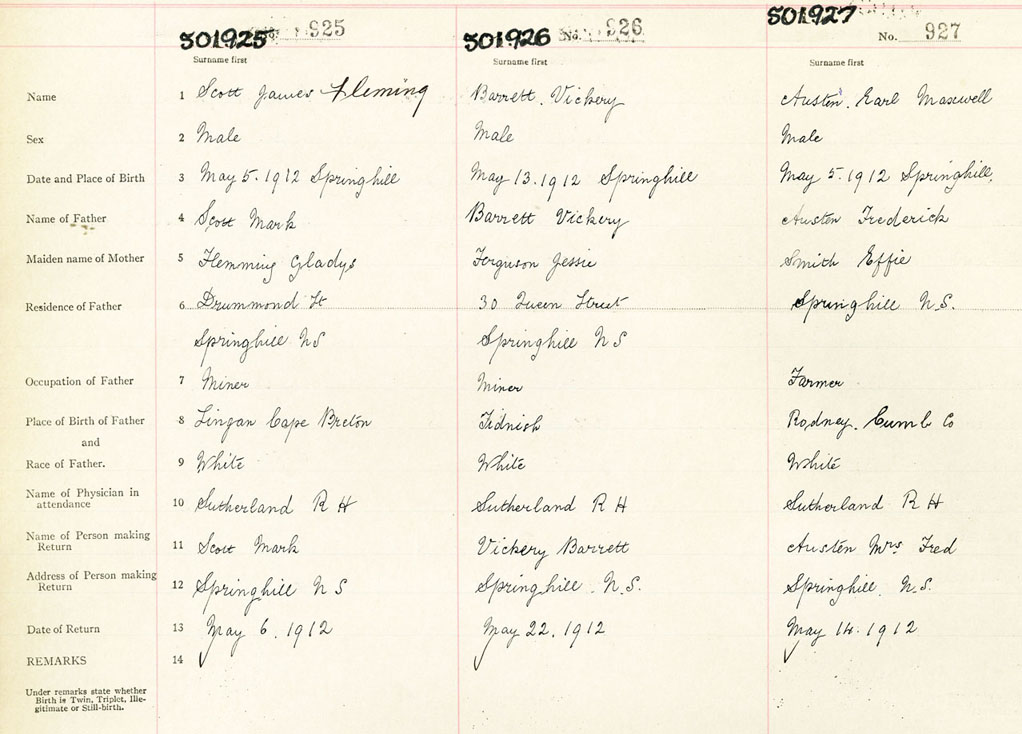 501925 No. 925 501926 No. 926 501927 No. 927
Surname first Surname first Surname first
Name 1 Scott James Fleming Barrett. Vickery Austen. Earl Maxwell
Sex 2 Male Male Male
Date and Place of Birth 3 May 5. 1912 Springhill May 13. 1912 Springhill May 5. 1912 Springhill.
Name of Father 4 Scott Mark Barrett Vickery Austen Frederick
Maiden name of Mother 5 Flemming Gladys Ferguson Jessie Smith Effie
Residence of Father 6 Drummond St 30 Queen Street Springhill N.S.
Springhill NS Springhill NS
Occupation of Father 7 Miner Miner Farmer
Place of Birth of Father 8 Lingan Cape Breton Tidnish Rodney. Cumb Co
and
Race of Father. 9 White White White
Name of Physician in
attendance 10 Sutherland R H Sutherland R H Sutherland R H
Name of Person making
Return 11 Scott Mark Vickery Barrett Austen Mrs Fred
Address of Person making
Return 12 Springhill N S Springhill. N.S. Springhill. N.S.
Date of Return 13 May 6. 1912 May 22. 1912 May 14. 1912
REMARKS 14
Under remarks state whether
Birth is Twin, Triplet, Ille-
gitimate or Still-birth.